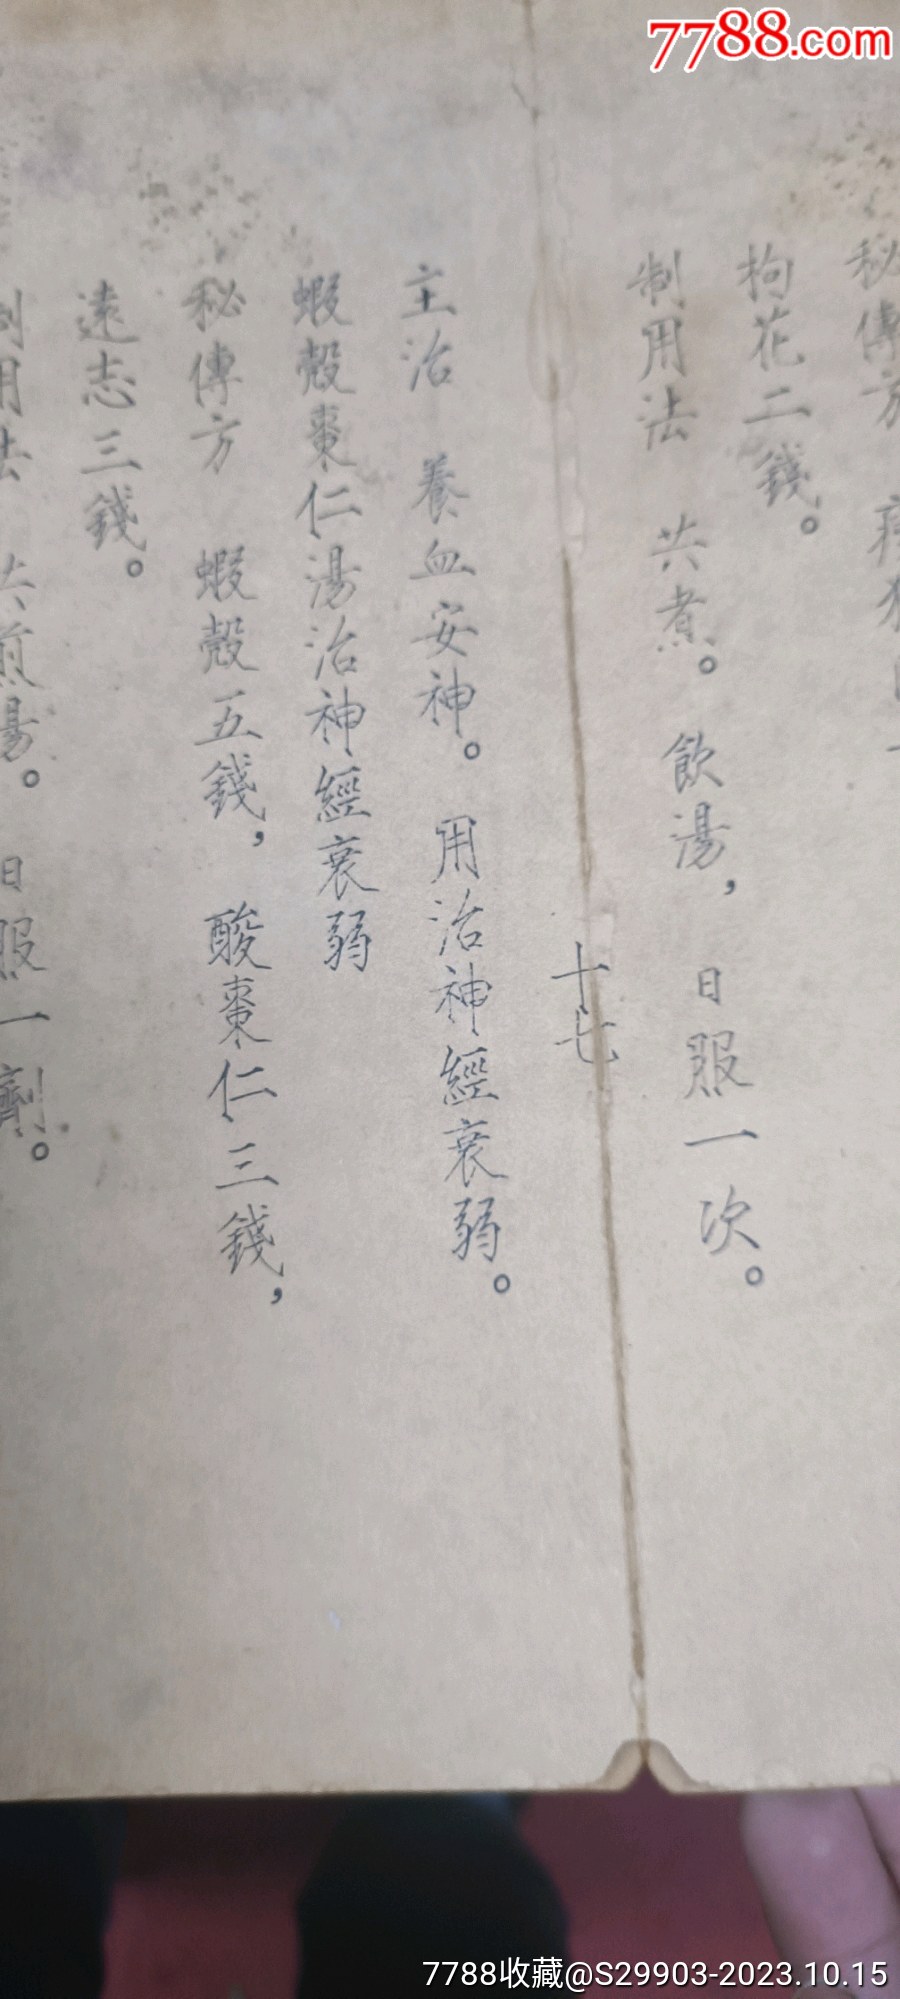 7788.com
秘傳方
拘花二錢。
制用法 共煮。飲湯，日服一次。
十七
主治 養血安神。用治神經衰弱。
蝦殼棗仁湯治神經衰弱
秘傳方 蝦殼五錢，酸棗仁三錢，
遠志三錢。
制用法 共煎湯。日服一劑。
7788收藏@S29903-2023.10.15